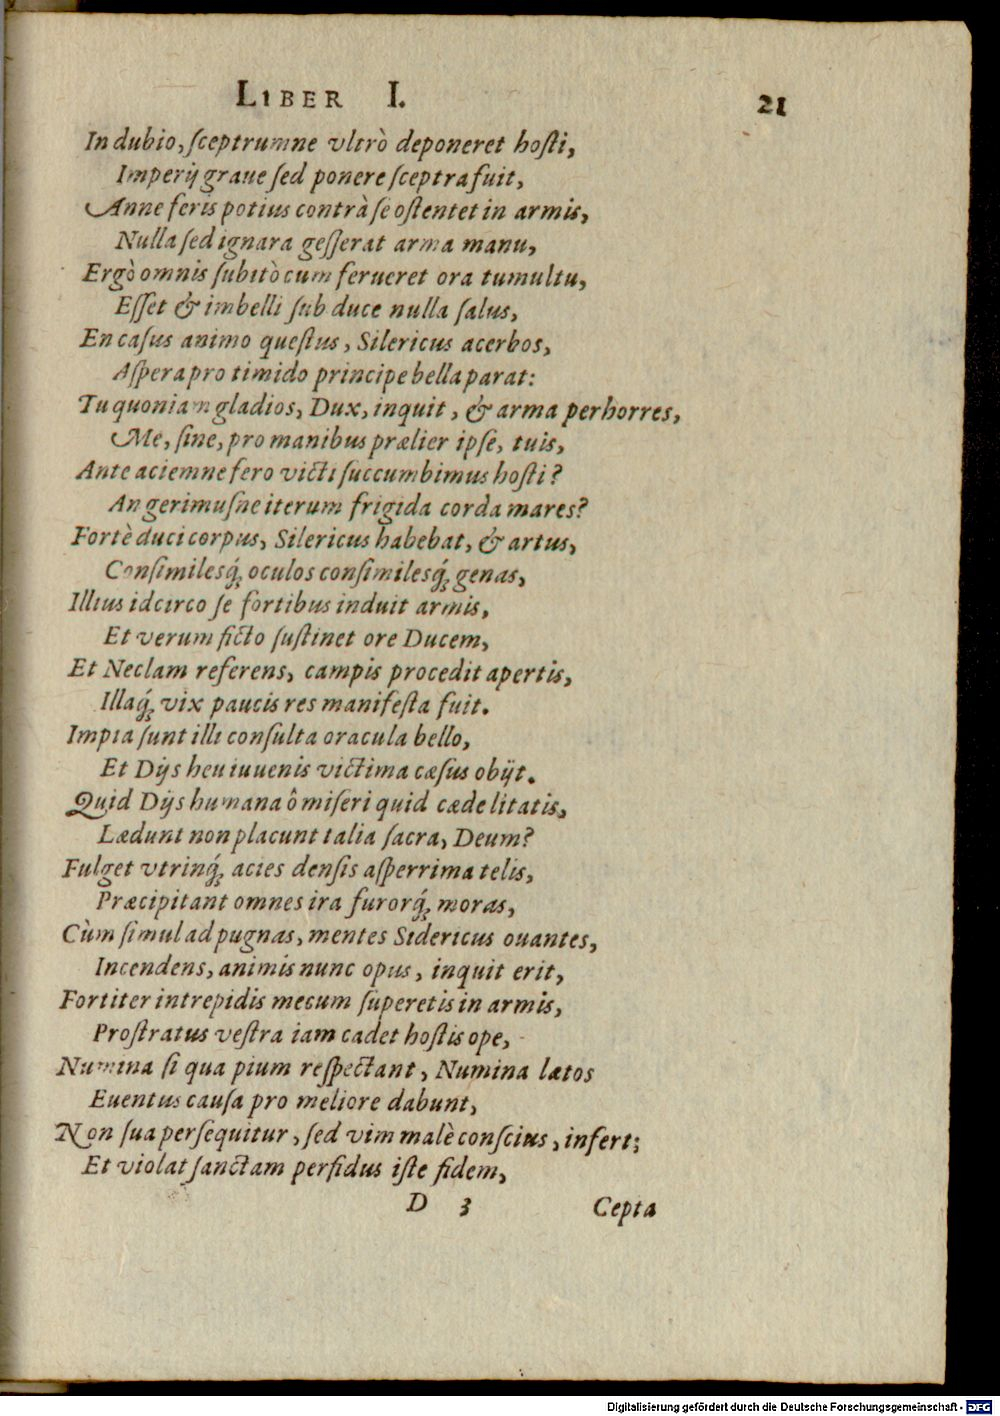 LIBER I. 21
In dubio, ſceptrumne vltrò deponeret hoſti,
Imperij graue ſed ponere ſceptra fuit,
Anne feris potius contrà ſe oſtentet in armis,
Nulla ſed ignara geſſerat arma manu,
Ergò omnis ſubitò cum ferueret ora tumultu,
Eſſet & imbelli ſub duce nulla ſalus,
En caſus animo queſtus, Silericus acerbos,
Aſpera pro timido principe bella parat:
Tu quoniam gladios, Dux, inquit, & arma perhorres,
Me, ſine, pro manibus prælier ipſe, tuis,
Ante aciemne fero victi ſuccumbimus hoſti?
An gerimuſne iterum frigida corda mares?
Fortè duci corpus, Silericus habebat, & artus,
Conſimilesq́; oculos conſimilesq́; genas,
Illius idcirco ſe fortibus induit armis,
Et verum ficto ſuſtinet ore Ducem,
Et Neclam referens, campis procedit apertis,
Illaq́; vix paucis res manifeſta fuit.
Impia ſunt illi conſulta oracula bello,
Et Dijs heu iuuenis victima cæſus obijt.
Quid Dijs humana ô miſeri quid cæde litatis,
Lædunt non placunt talia ſacra, Deum?
Fulget vtrinq́; acies denſis aſperrima telis,
Præcipitant omnes ira furorq́; moras,
Cùm ſimul ad pugnas, mentes Sidericus ouantes,
Incendens, animis nunc opus, inquit erit,
Fortiter intrepidis mecum ſuperetis in armis,
Proſtratus veſtra iam cadet hoſtis ope,
Numina ſi qua pium reſpectant, Numina lætos
Euentus cauſa pro meliore dabunt,
Non ſua perſequitur, ſed vim malè conſcius, infert;
Et violat ſanctam perfidus iſte fidem,
D 3 Cepta
Digitalisierung gefördert durch die Deutsche Forschungsgemeinschaft - DFG